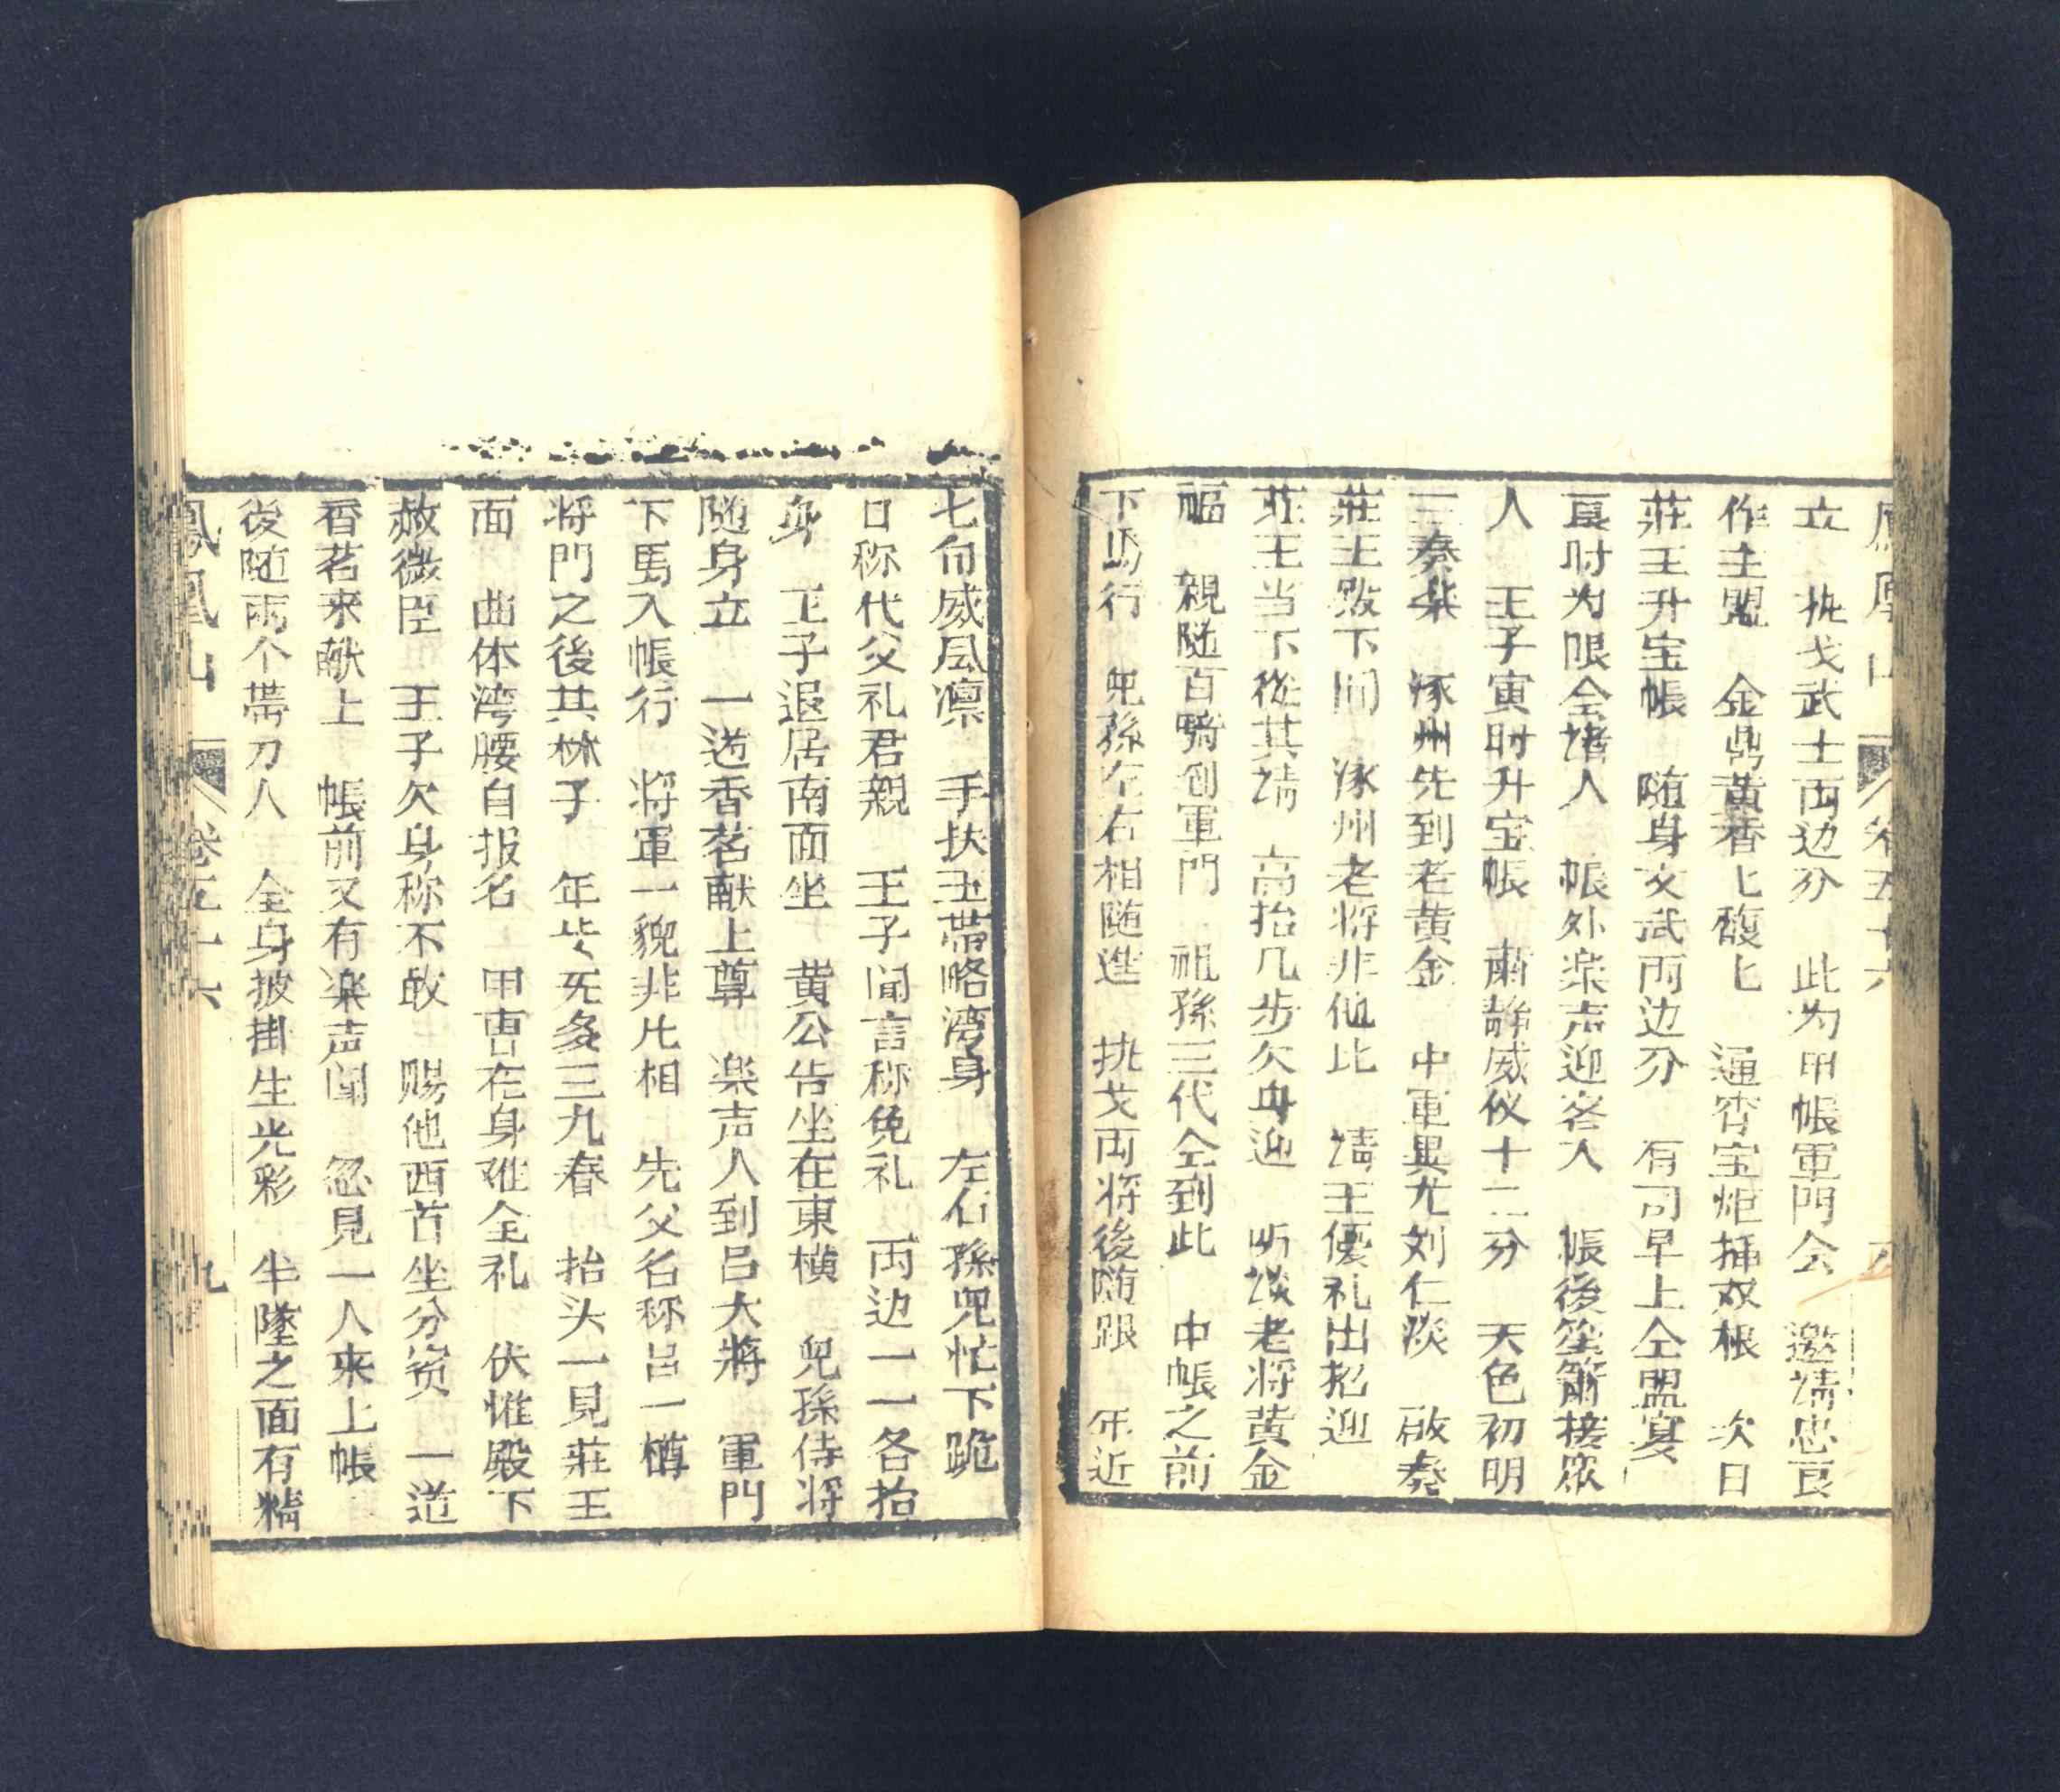 鳳凰山 卷五十六 八
立 执戈武士両边分 此为甲帳軍門会 邀請忠良
作主盟 金鼎黃香匕馥匕 通宵宝炬揷双根 次日
莊王升宝帳 随身文武両边分 有司早上仝盟宴
寅时为限全諸人 帳外楽声迎客人 帳後笙簫接衆
人 王子寅时升宝帳 肅静威仪十二分 天色初明
三奏楽 涿州先到老黄金 中軍異尤刘仁淡 啟奏
莊王跋下闻 涿州老将非他比 請王優礼出招迎
莊王当下從其請 高抬几步欠身迎 听談老将黄金
福 親随百騎创軍門 祖孫三代仝到此 中帳之前
下馬行 児孫左右相随進 执戈両将後随跟 年近
七旬威凨凛 手扶玉帶略湾身 左右孫児忙下跪
口称代父礼君親 王子闻言称免礼 両边一一各抬
身 王子退居南面坐 黄公告坐在東横 児孫侍将
随身立 一道香茗献上尊 楽声人到吕大將 軍門
下馬入帳行 将軍一貌非凡相 先父名称吕一樽
将門之後其林子 年歩旡多三九春 抬头一見莊王
面 曲体湾腰自报名 甲冑在身难全礼 伏惟殿下
赦微臣 王子欠身称不敢 赐他西首坐分賓 一道
香茗来献上 帳前又有楽声闻 忽見一人来上帳
後随両个帶刀人 全身披掛生光彩 半墜之面有精
鳳凰山 卷五十六 九